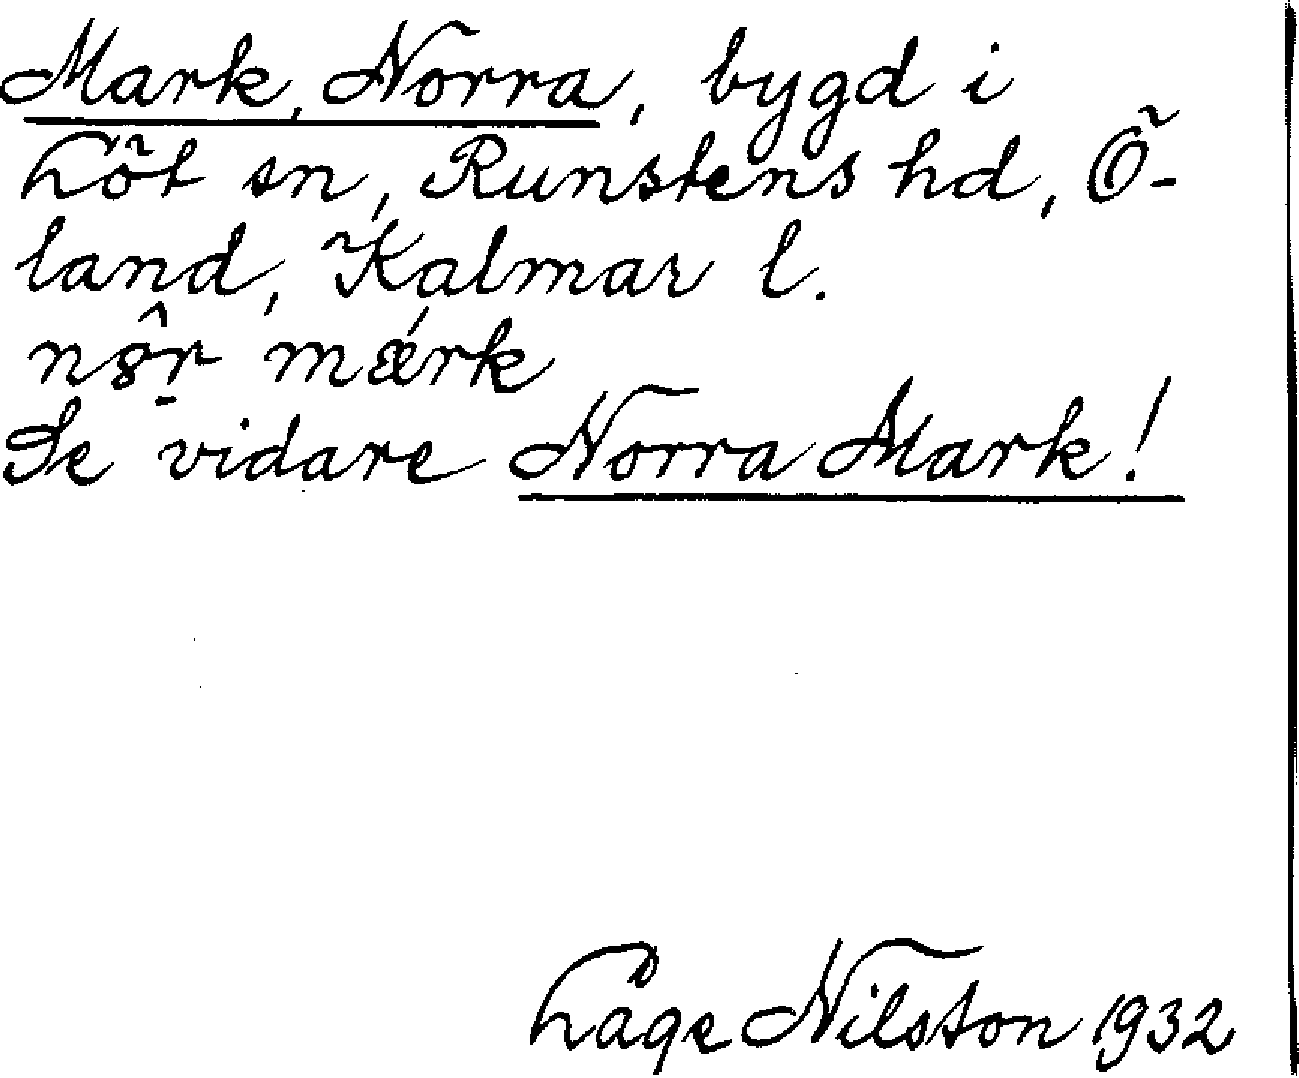 Mark, Norra, bygd i
Löt sn, Runstens hd, Ö-
land, Kalmar l.
mǽrk
Se vidare Norra Mark!
Låge Nilsson 1932